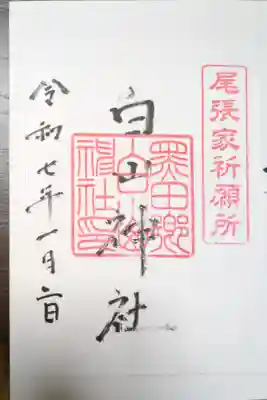 尾張家祈願所
白山神社
黒田郷
神社印
令和七年一月二日